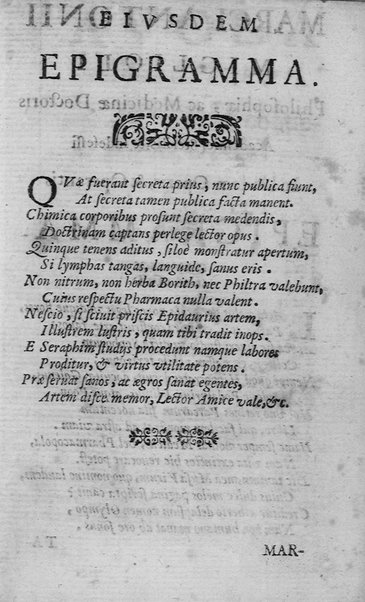 EIVSDEM
EPIGRAMMA.
QVæ fuerant secreta prius, nunc publica fiunt,
At secreta tamen publica facta manent.
Chimica corporibus prosunt secreta medendis,
Doctrinam captans perlege lector opus.
Quinque tenens aditus, siloè monstratur apertum,
Si lymphas tangas, languide, sanus eris.
Non nitrum, non herba Borith, nec Philtra valebunt,
Cuius respectu Pharmaca nulla valent.
Nescio, si sciuit priscis Epidaurius artem,
Illustrem lustris, quam tibi tradit inops.
E Seraphim studijs procedunt namque labores
Proditur, & virtus vtilitate potens.
Præseruat sanos, at ægros sanat egentes,
Artem disce memor, Lector Amice vale, &c.
MAR-